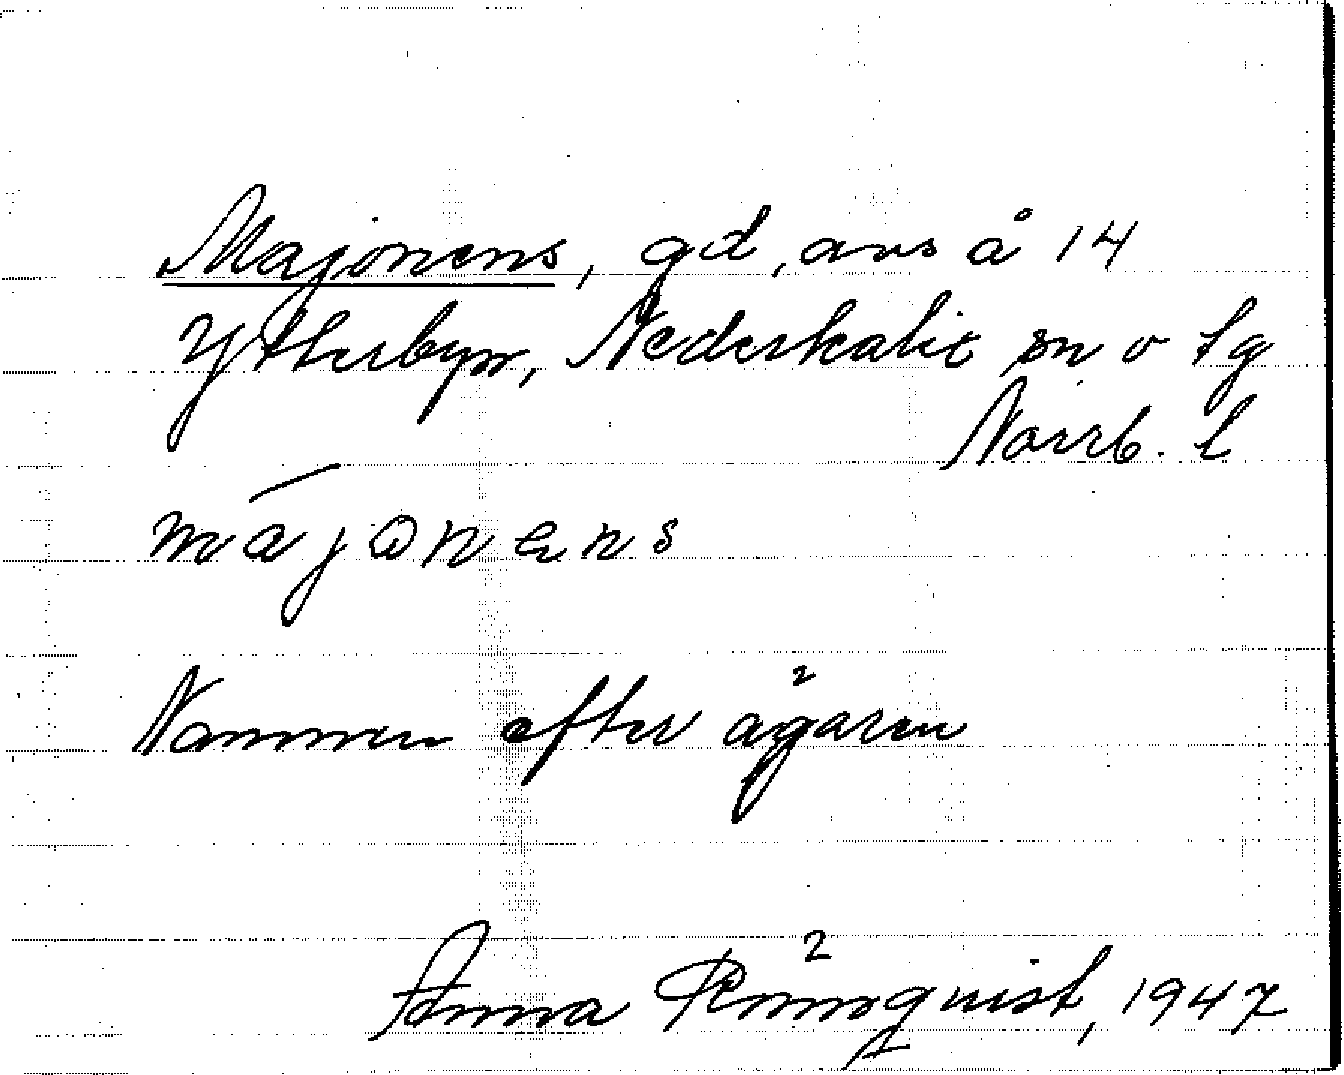 Majonens, gd, avs å 14
Ytterbyn, Nederkalix sn o tg
Norrb. l
mājonens
Namnen efter ägaren
Anna Rönnqvist, 1947